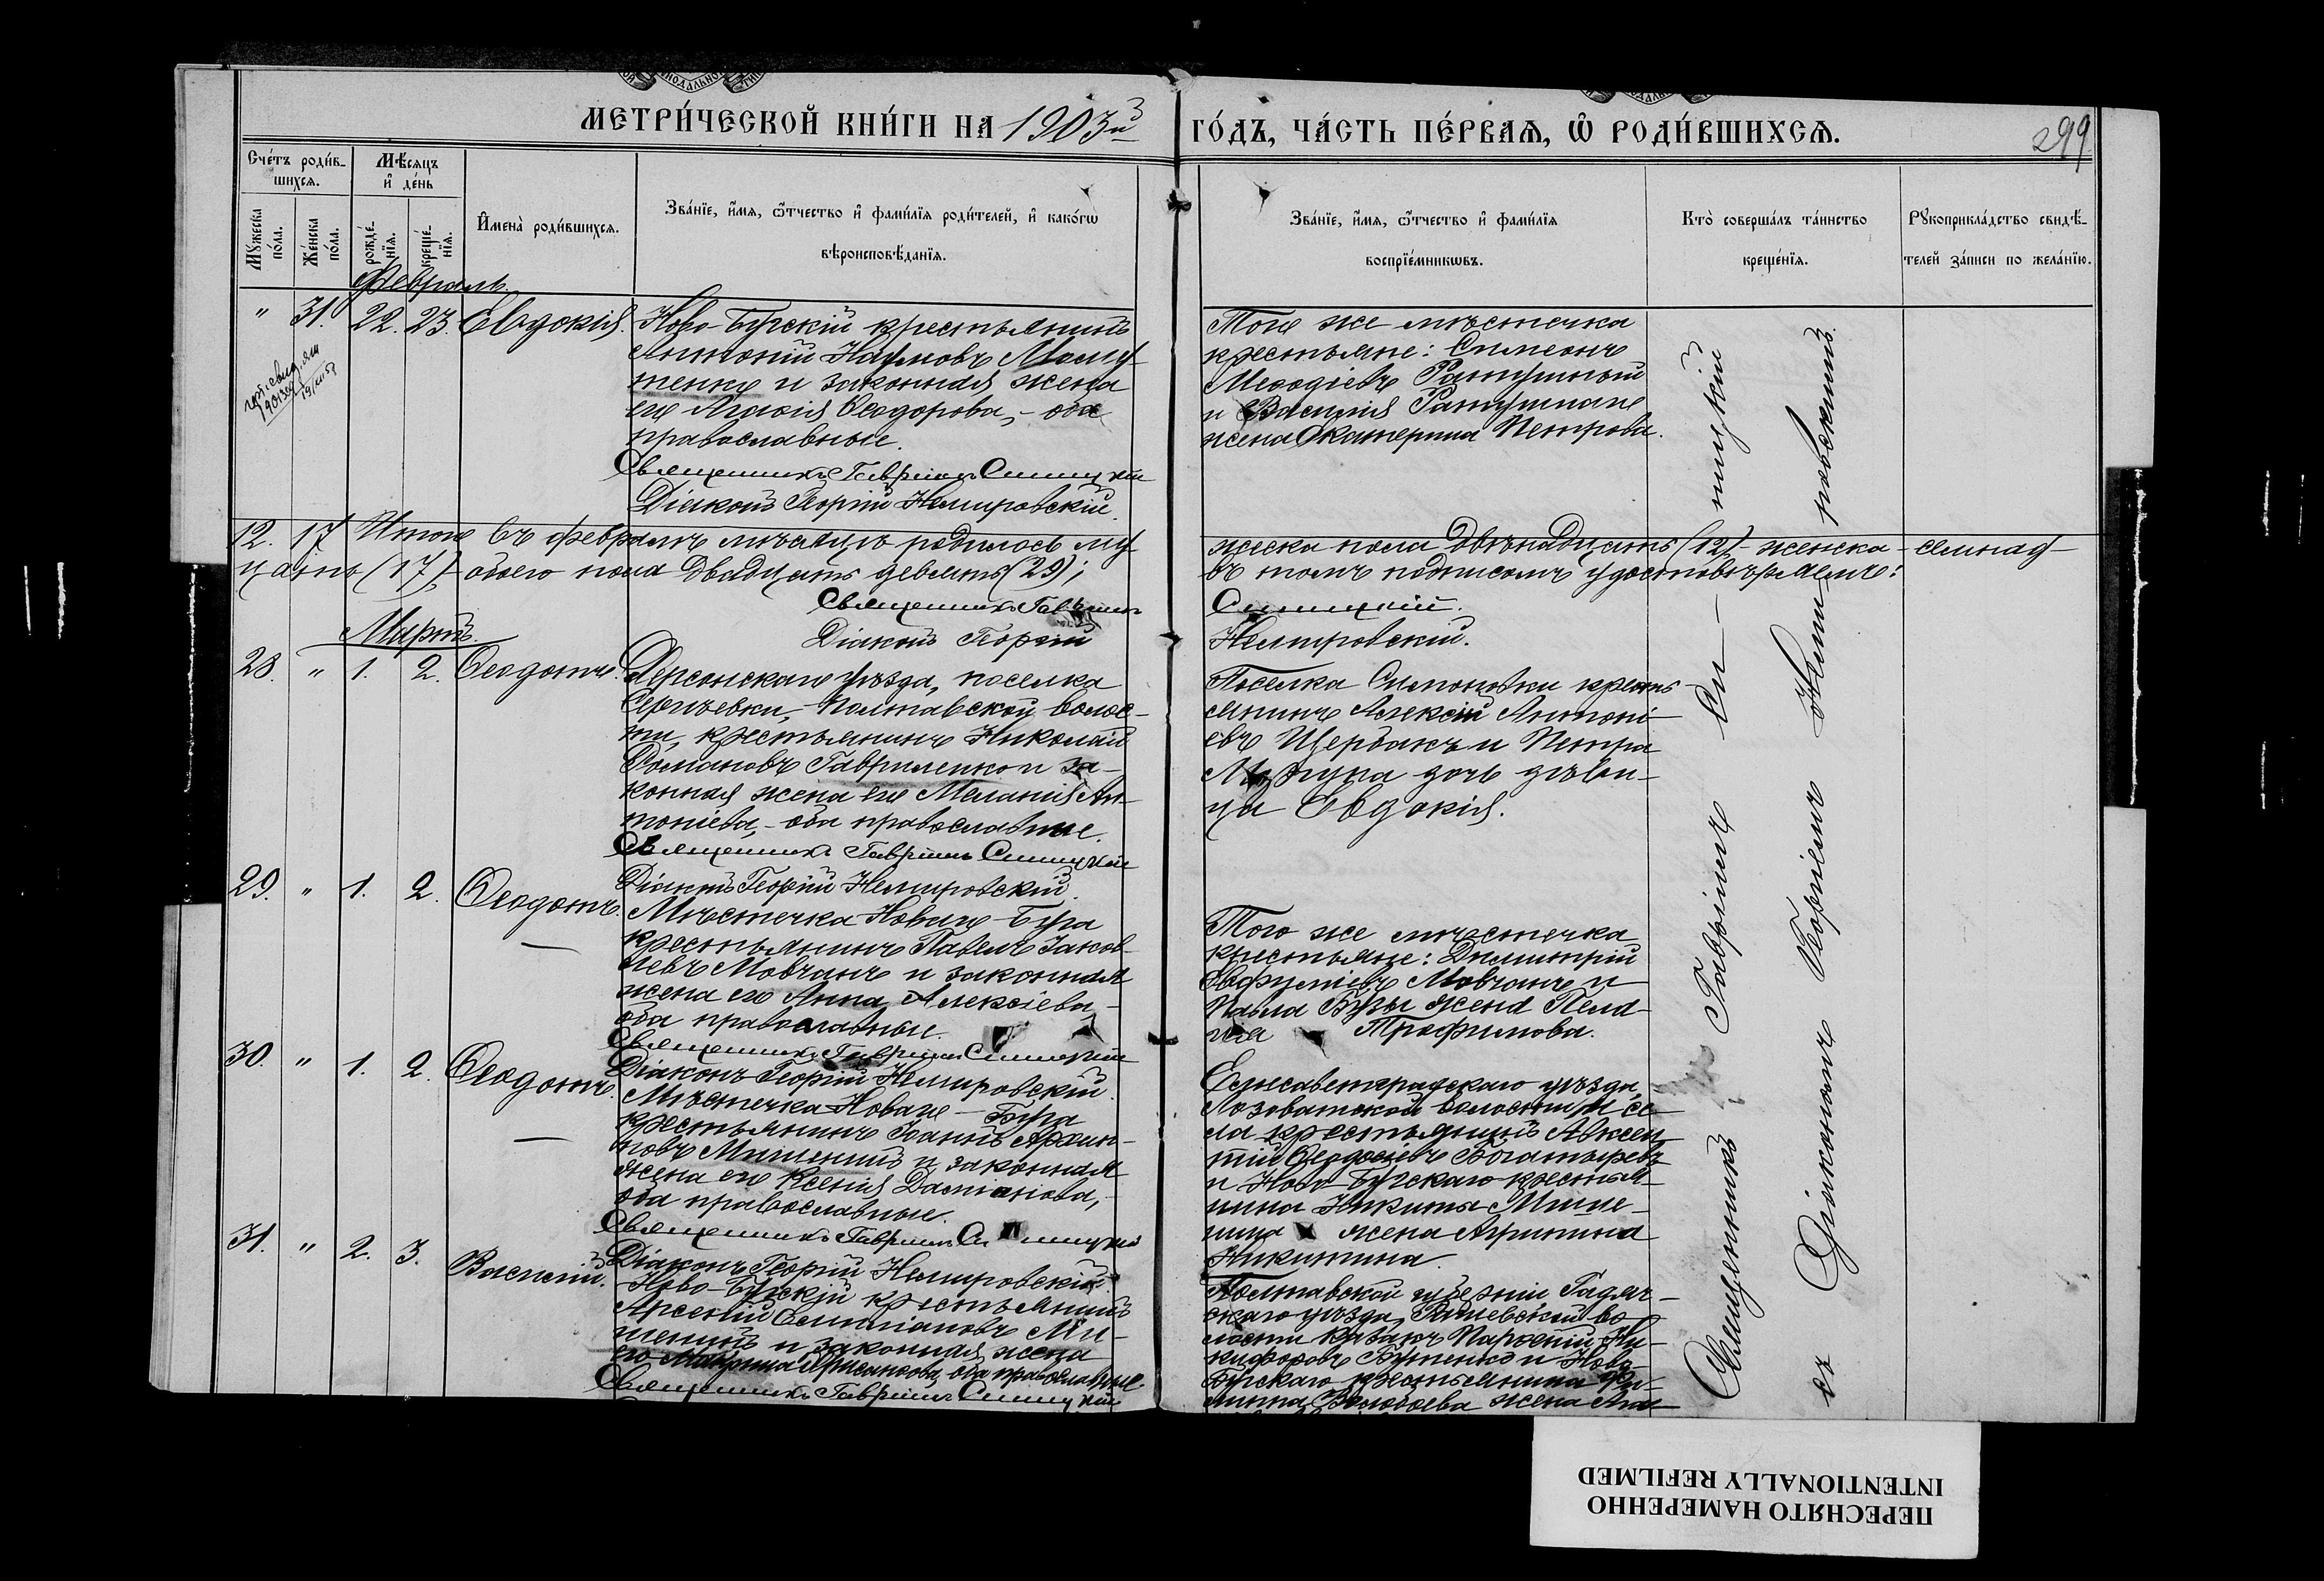 МЕТРИ́ЧЕСКОЙ КНИ́ГИ НА 1903й
ГО́ДЪ, ЧА́СТЬ ПЕ́РВАѦ, Ѡ҃ РОДИ́ВШИХСѦ.
299
Сче́тъ роди́в-
шихсѧ.
Мѣ́сѧцъ
и҆ де́нь
Мꙋ́жеска
по́ла.
Же́нска
по́ла.
рожде́-
нїѧ.
креще́-
нїѧ.
И҆мена̀ роди́вшихсѧ.
Зва́нїе, и҆́мѧ, ѻ҆́тчество и҆ фами́лїѧ роди́телей, и҆ како́гѡ
вѣроисповѣ́данїѧ.
Зва́нїе, и҆́мѧ, ѻ҆́тчество и҆ фами́лїѧ
воспрїе́мникѡвъ.
Кто̀ соверша́лъ та́инство
креще́нїѧ.
Рꙋкоприкла́дство свидѣ́-
телей за́писи по жела́нїю.
Февраль.
" 31. 22. 23. Евдокія.
Ново-Бугскій крестьянинъ
Антоній Наумовъ
и законная жена
его Агафія Ѳеодорова, - оба
православные.
Священникъ Гавріилъ Синицкій
Діаконъ Георгій Немировскій.
Того же мѣстечка
крестьяне: Симеонъ
Меѳодіевъ Ратушный
и Василія Ратушнаго
жена Екатерина Петрова.
12. 17. Итого въ февралѣ мѣсяцѣ родилось му-
жеска пола двѣнадцать (12) - женска - семнад-
цать (17), обоего пола двадцать девять (29);
въ томъ подписомъ удостовѣряемъ:
Священникъ Гавріилъ
Синицкій.
Діаконъ Георгій
Немировскій.
Мартъ.
28. " 1. 2. Ѳеодотъ.
Херсонскаго уѣзда, поселка
Сергѣевки, Полтавской волос-
ти, крестьянинъ Николай
Романовъ Гавриленко и за-
конная жена его Меланія Ан-
тоніева, - оба православные.
Священникъ Гавріилъ Синицкій
Діаконъ Георгій Немировскій.
Поселка Симоновки кресть-
янинъ Алексій Антоні-
евъ Щербакъ и Петра
дочь дѣви-
ца Евдокія.
29. " 1. 2. Ѳеодотъ.
Мѣстечка Новаго-Буга
крестьянинъ Павелъ Іаков-
левъ Мовчанъ и законная
жена его Анна Алексіева,
оба православные.
Священникъ Гавріилъ Синицкій
Діаконъ Георгій Немировскій.
Того же мѣстечка
крестьяне: Димитрій
Евфиміевъ Мовчанъ и
Павла Бузы жена Пела-
гія Трофимова.
30. " 1. 2. Ѳеодотъ.
Мѣстечка Новаго-Буга
крестьянинъ Іоаннъ Архип-
повъ Мишенинъ и законная
жена его Ксенія Даміанова,
оба православные.
Священникъ Гавріилъ Синицкій
Діаконъ Георгій Немировскій.
Елисаветградскаго уѣзда,
Лозоватской волости и се-
ла крестьянинъ Авксен-
тій Ѳеодосіевъ Богатыревъ
и Ново-Бугскаго крестья-
нина Никиты Мише-
нина жена Агрипина
Никитина.
31. " 2. 3. Василій.
Ново-Бугскій крестьянинъ
Арсеній Емиліановъ Ми-
шенинъ и законная жена
его оба православные.
Священникъ Гавріилъ Синицкій
Полтавской губерніи Гадяч-
скаго уѣзда, Рашевской во-
лости козакъ Парѳеній Ни-
кифоровъ Бутенко и Ново-
Бугскаго крестьянина Фи-
липпа жена
Священникъ Гавріилъ Синицкій
съ Діакономъ Георгіемъ Немировскимъ.
ПЕРЕСНЯТО НАМЕРЕННО
INTENTIONALLY REFILMED